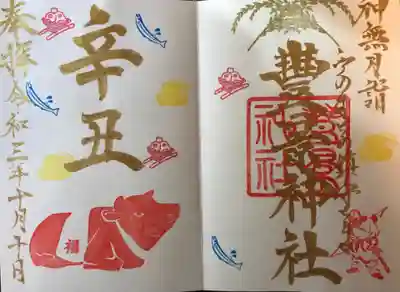 神無月詣
豊景神社
辛丑
奉拝令和三年十月十日
福